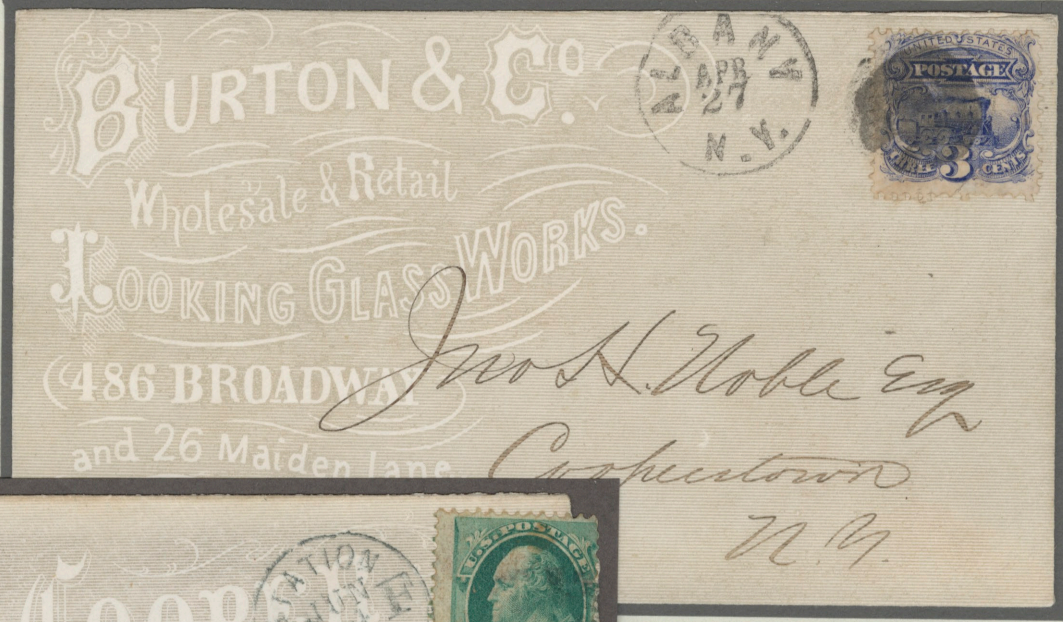 BURTON & Co.
Wholesale & Retail
LOOKING GLASS WORKS.
486 BROADWAY
and 26 Maiden Lane
ALBANY
APR
27
N.Y.
UNITED STATES
POSTAGE
THREE 3 CENTS
Jno H. Noble Esq
Cooperstown
N.Y.
STATION E
JUN
U.S. POSTAGE